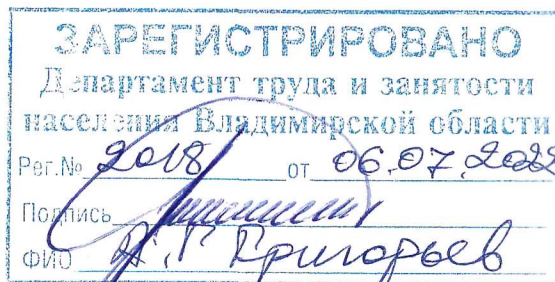 ЗАРЕГИСТРИРОВАНО
Департамент труда и занятости
населения Владимирской области
Рег.№ 2018 от 06.07.2022
Подпись
ФИО Григорьев